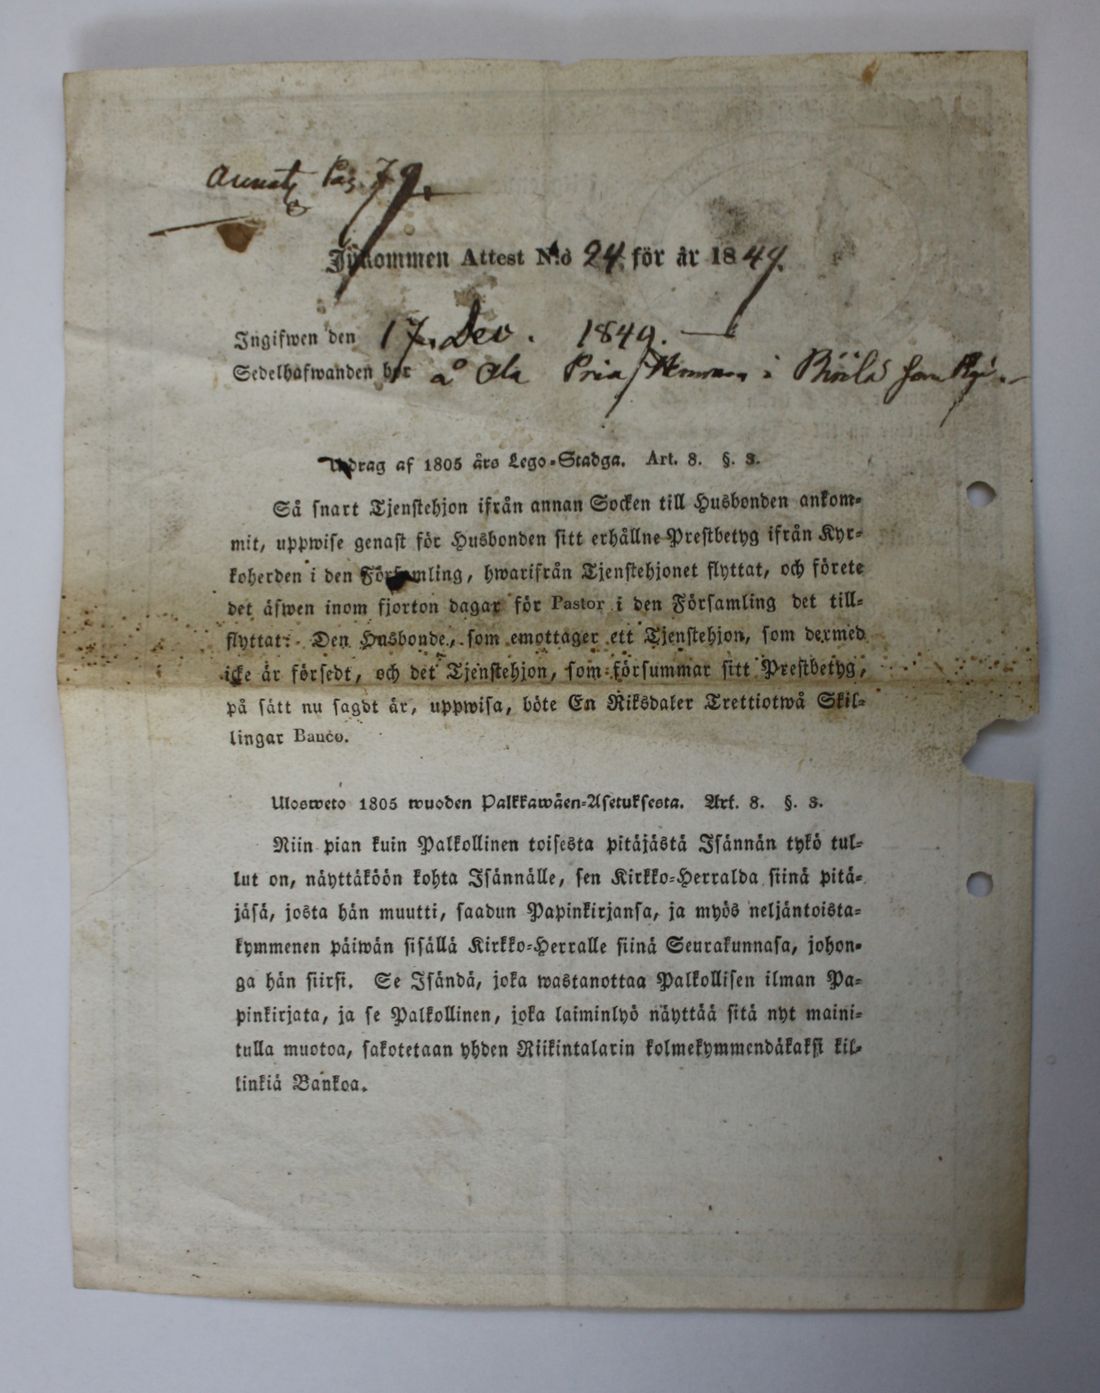 Pag. 79.
Inkommen Attest N:o 24 för år 1849.
Ingifwen den 17. Dec. 1849.
Sedelhafwanden bor å Ola i
Utdrag af 1805 års Lego-Stadga. Art. 8. §. 3.
Så snart Tjenstehjon ifrån annan Socken till Husbonden ankom-
mit, uppwise genast för Husbonden sitt erhållne Prestbetyg ifrån Kyr-
koherden i den Församling, hwarifrån Tjenstehjonet flyttat, och förete
det äfwen inom fjorton dagar för Pastor i den Församling det till-
flyttat. Den Husbonde, som emottager ett Tjenstehjon, som dermed
icke är försedt, och det Tjenstehjon, som försummar sitt Prestbetyg,
på sätt nu sagdt är, uppwisa, böte En Riksdaler Trettiotwå Skil-
lingar Banco.
Ulosweto 1805 wuoden Palkkawäen-Asetuksesta. Art. 8. §. 3.
Niin pian kuin Palkollinen toisesta pitäjästä Isännän tykö tul-
lut on, näyttäköön kohta Isännälle, sen Kirkko-Herralda siinä pitä-
jäsä, josta hän muutti, saadun Papinkirjansa, ja myös neljäntoista-
kymmenen päiwän sisällä Kirkko-Herralle siinä Seurakunnasa, johon-
ga hän siirsi. Se Isändä, joka wastanottaa Palkollisen ilman Pa-
pinkirjata, ja se Palkollinen, joka laiminlyö näyttää sitä nyt maini-
tulla muotoa, sakotetaan yhden Riikintalarin kolmekymmendäkaksi kil-
linkiä Bankoa.